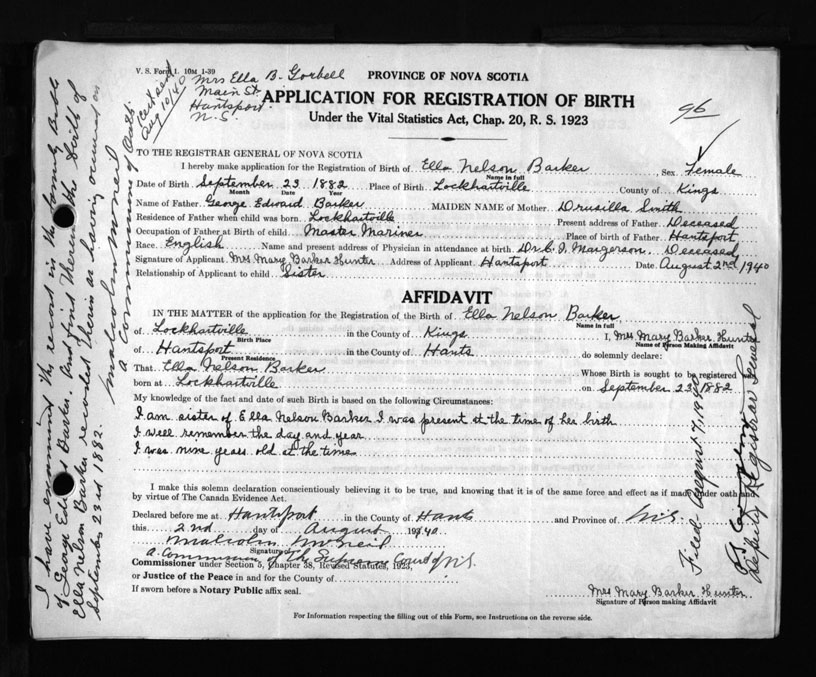 V. S. Form 1. 10M 1-39
Mrs Ella B. Gorbell
Main St.
Hantsport
N.S.
Aug 10/40
PROVINCE OF NOVA SCOTIA
APPLICATION FOR REGISTRATION OF BIRTH
Under the Vital Statistics Act, Chap. 20, R. S. 1923
96
TO THE REGISTRAR GENERAL OF NOVA SCOTIA
I hereby make application for the Registration of Birth of Ella Nelson Barker Sex Female
Name in full
Date of Birth September 23 1882 Place of Birth Lockhartville County of Kings
Month Date Year
Name of Father George Edward Barker MAIDEN NAME of Mother Drusilla Smith
Residence of Father when child was born Lockhartville Present address of Father Deceased
Occupation of Father at Birth of child Master Mariner Place of birth of Father Hantsport
Race English Name and present address of Physician in attendance at birth Dr. C. I. Margerson. Deceased
Signature of Applicant Mrs Mary Barker Hunter Address of Applicant Hantsport Date August 2nd 1940
Relationship of Applicant to child Sister
AFFIDAVIT
IN THE MATTER of the application for the Registration of the Birth of Ella Nelson Barker
Name in full
of Lockhartville in the County of Kings I, Mrs Mary Barker Hunter
Birth Place Name of Person Making Affidavit
of Hantsport in the County of Hants do solemnly declare:
Present Residence
That Ella Nelson Barker Whose Birth is sought to be registered was
born at Lockhartville on September 23 1882
My knowledge of the fact and date of such Birth is based on the following Circumstances:
I am sister of Ella Nelson Barker I was present at the time of her birth
I well remember the day and year
I was nine years old at the time
I make this solemn declaration conscientiously believing it to be true, and knowing that it is of the same force and effect as if made under oath and
by virtue of The Canada Evidence Act.
Declared before me at Hantsport in the County of Hants and Province of N.S.
this 2nd day of August 1940.
Malcolm McNeil
Signature of
a Commissioner of the Supreme Court of N.S.
Commissioner under Section 5, Chapter 38, Revised Statutes, 1923,
or Justice of the Peace in and for the County of
If sworn before a Notary Public affix seal.
Mrs Mary Barker Hunter
Signature of Person making Affidavit
For Information respecting the filling out of this Form, see Instructions on the reverse side.
I have examined the record in the family Bible
of George Edward Barker. And find therein the birth of
Ella Nelson Barker recorded therein as having occurred on
September 23rd 1882.
Malcolm McNeil
a Commissioner of Oaths
Filed August 7, 1940
Deputy Registrar General